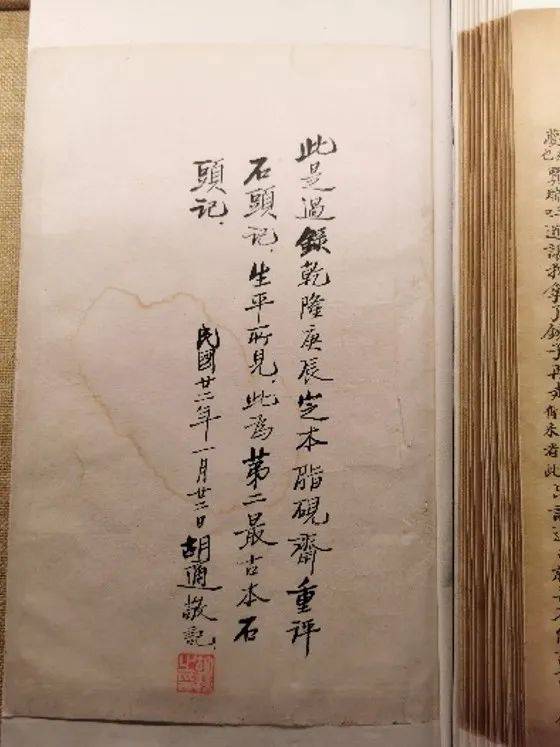 此是過錄乾隆庚辰定本脂硯齋重評
石頭記，生平所見，此為第二最古本石
頭記．
民國廿二年一月廿二日 胡適敬記．